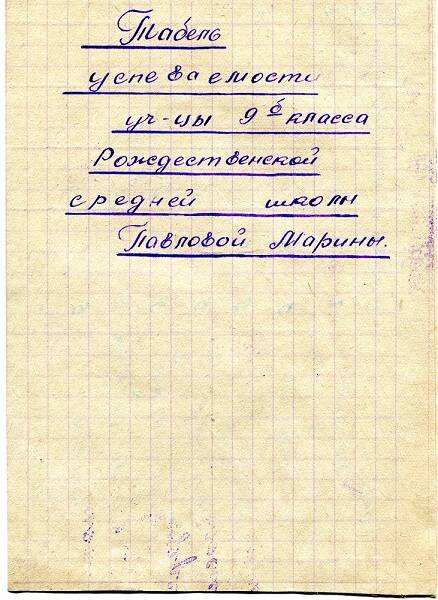 Табель
успеваемости
уч-цы 9 б класса
Рождественской
средней школы
Павловой Марины.